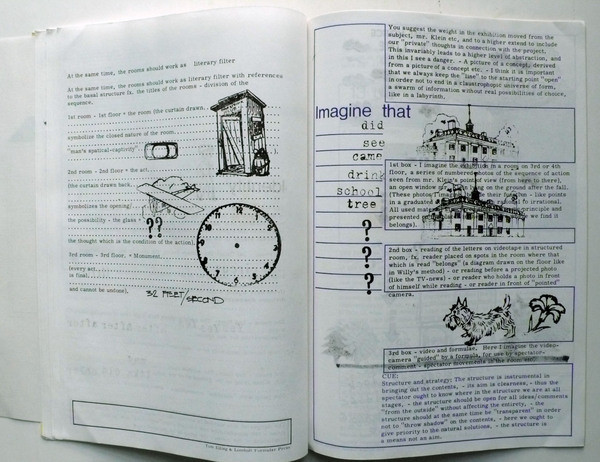 At the same time, the rooms should work as literary filter
At the same time, the rooms should work as literary filter with references
to the basal structure fx. the titles of the rooms - division of the
sequence.
1st room - 1st floor + the room (the curtain drawn
symbolize the closed nature of the room.
"man's spatial-captivity"
2nd room - 2nd floor + the act
(the curtain drawn back.
symbolizes the opening)
the possibility - the glass
??
the thought which is the condition of the action).
3rd room - 3rd floor. + Monument.
(every act
is final,
and cannot be undone).
32 FEET/SECOND
You suggest the weight in the exhibition moved from the
subject, mr. Klein etc, and to a higher extend to include
our "private" thoughts in connection with the project.
This invariably leads to a higher level of abstraction, and
in this I see a danger. - A picture of a concept, derived
from a picture of a concept etc. - I think it is important
that we always keep the "line" to the starting point "open"
in order not to end in a claustrophopic universe of form,
a swarm of information without real possibilities of choice,
like in a labyrinth.
Imagine that
did
see
came
drink
school
tree
?
?
?
1st box - I imagine the exhibition in a room on 3rd or 4th
floor, a series of numbered photos of the sequence of action
seen from mr. Klein's pointed view (from here to there),
an open window
on the ground after the fall.
(These photos
their function - like points
in a graduated
to irrational.
All used
principle and
presented
we find it
belongs).
2nd box - reading of the letters on videotape in structured
room, fx. reader placed on spots in the room where that
which is read "belongs" (a diagram drawn on the floor like
in Willy's method) - or reading before a projected photo
(like the TV-news) - or reader who holds a photo in front
of himself while reading - or reader in front of "pointed"
camera.
3rd box - video and formulae. Here I imagine the video-
camera "guided" by a formula, for use by spectator-
comment - spectator movements in the room etc.
CUE:
Structure and strategy: The structure is instrumental in
bringing out the contents, - its aim is clearness, - thus the
spectator ought to know where in the structure we are at all
stages, - the structure should be open for all ideas/comments
"from the outside" without affecting the entirety, - the
structure should at the same time be "transparent" in order
not to "throw shadow" on the contents, - here we ought to
give priority to the natural solutions, - the structure is
a means not an aim.